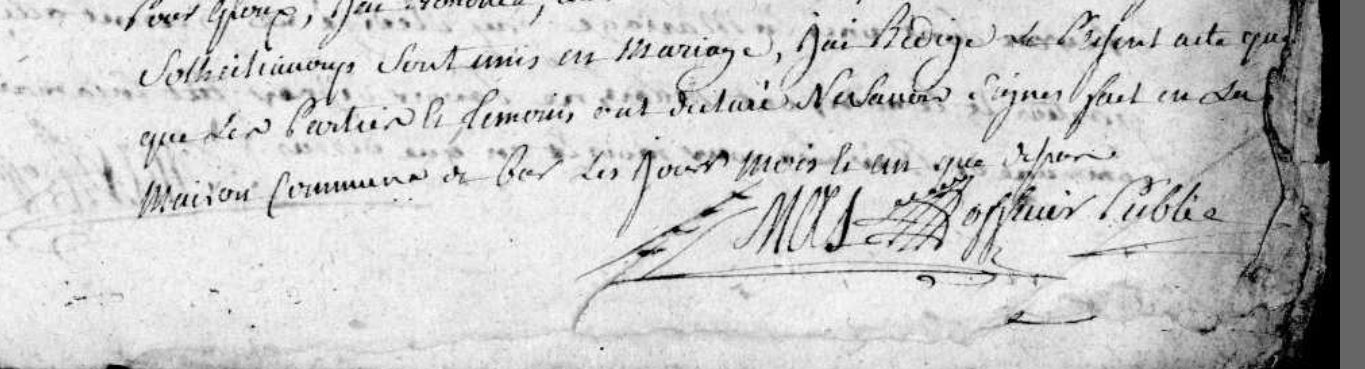 Pour Epoux, J'ai
Sont unis en Mariage, J'ai Rédigé le Present acte que
que Les Parties et temoins ont déclaré Ne Savoir Signer fait en La
Maison Commune de bar Les Jour mois et an que dessus
MAS officier Public